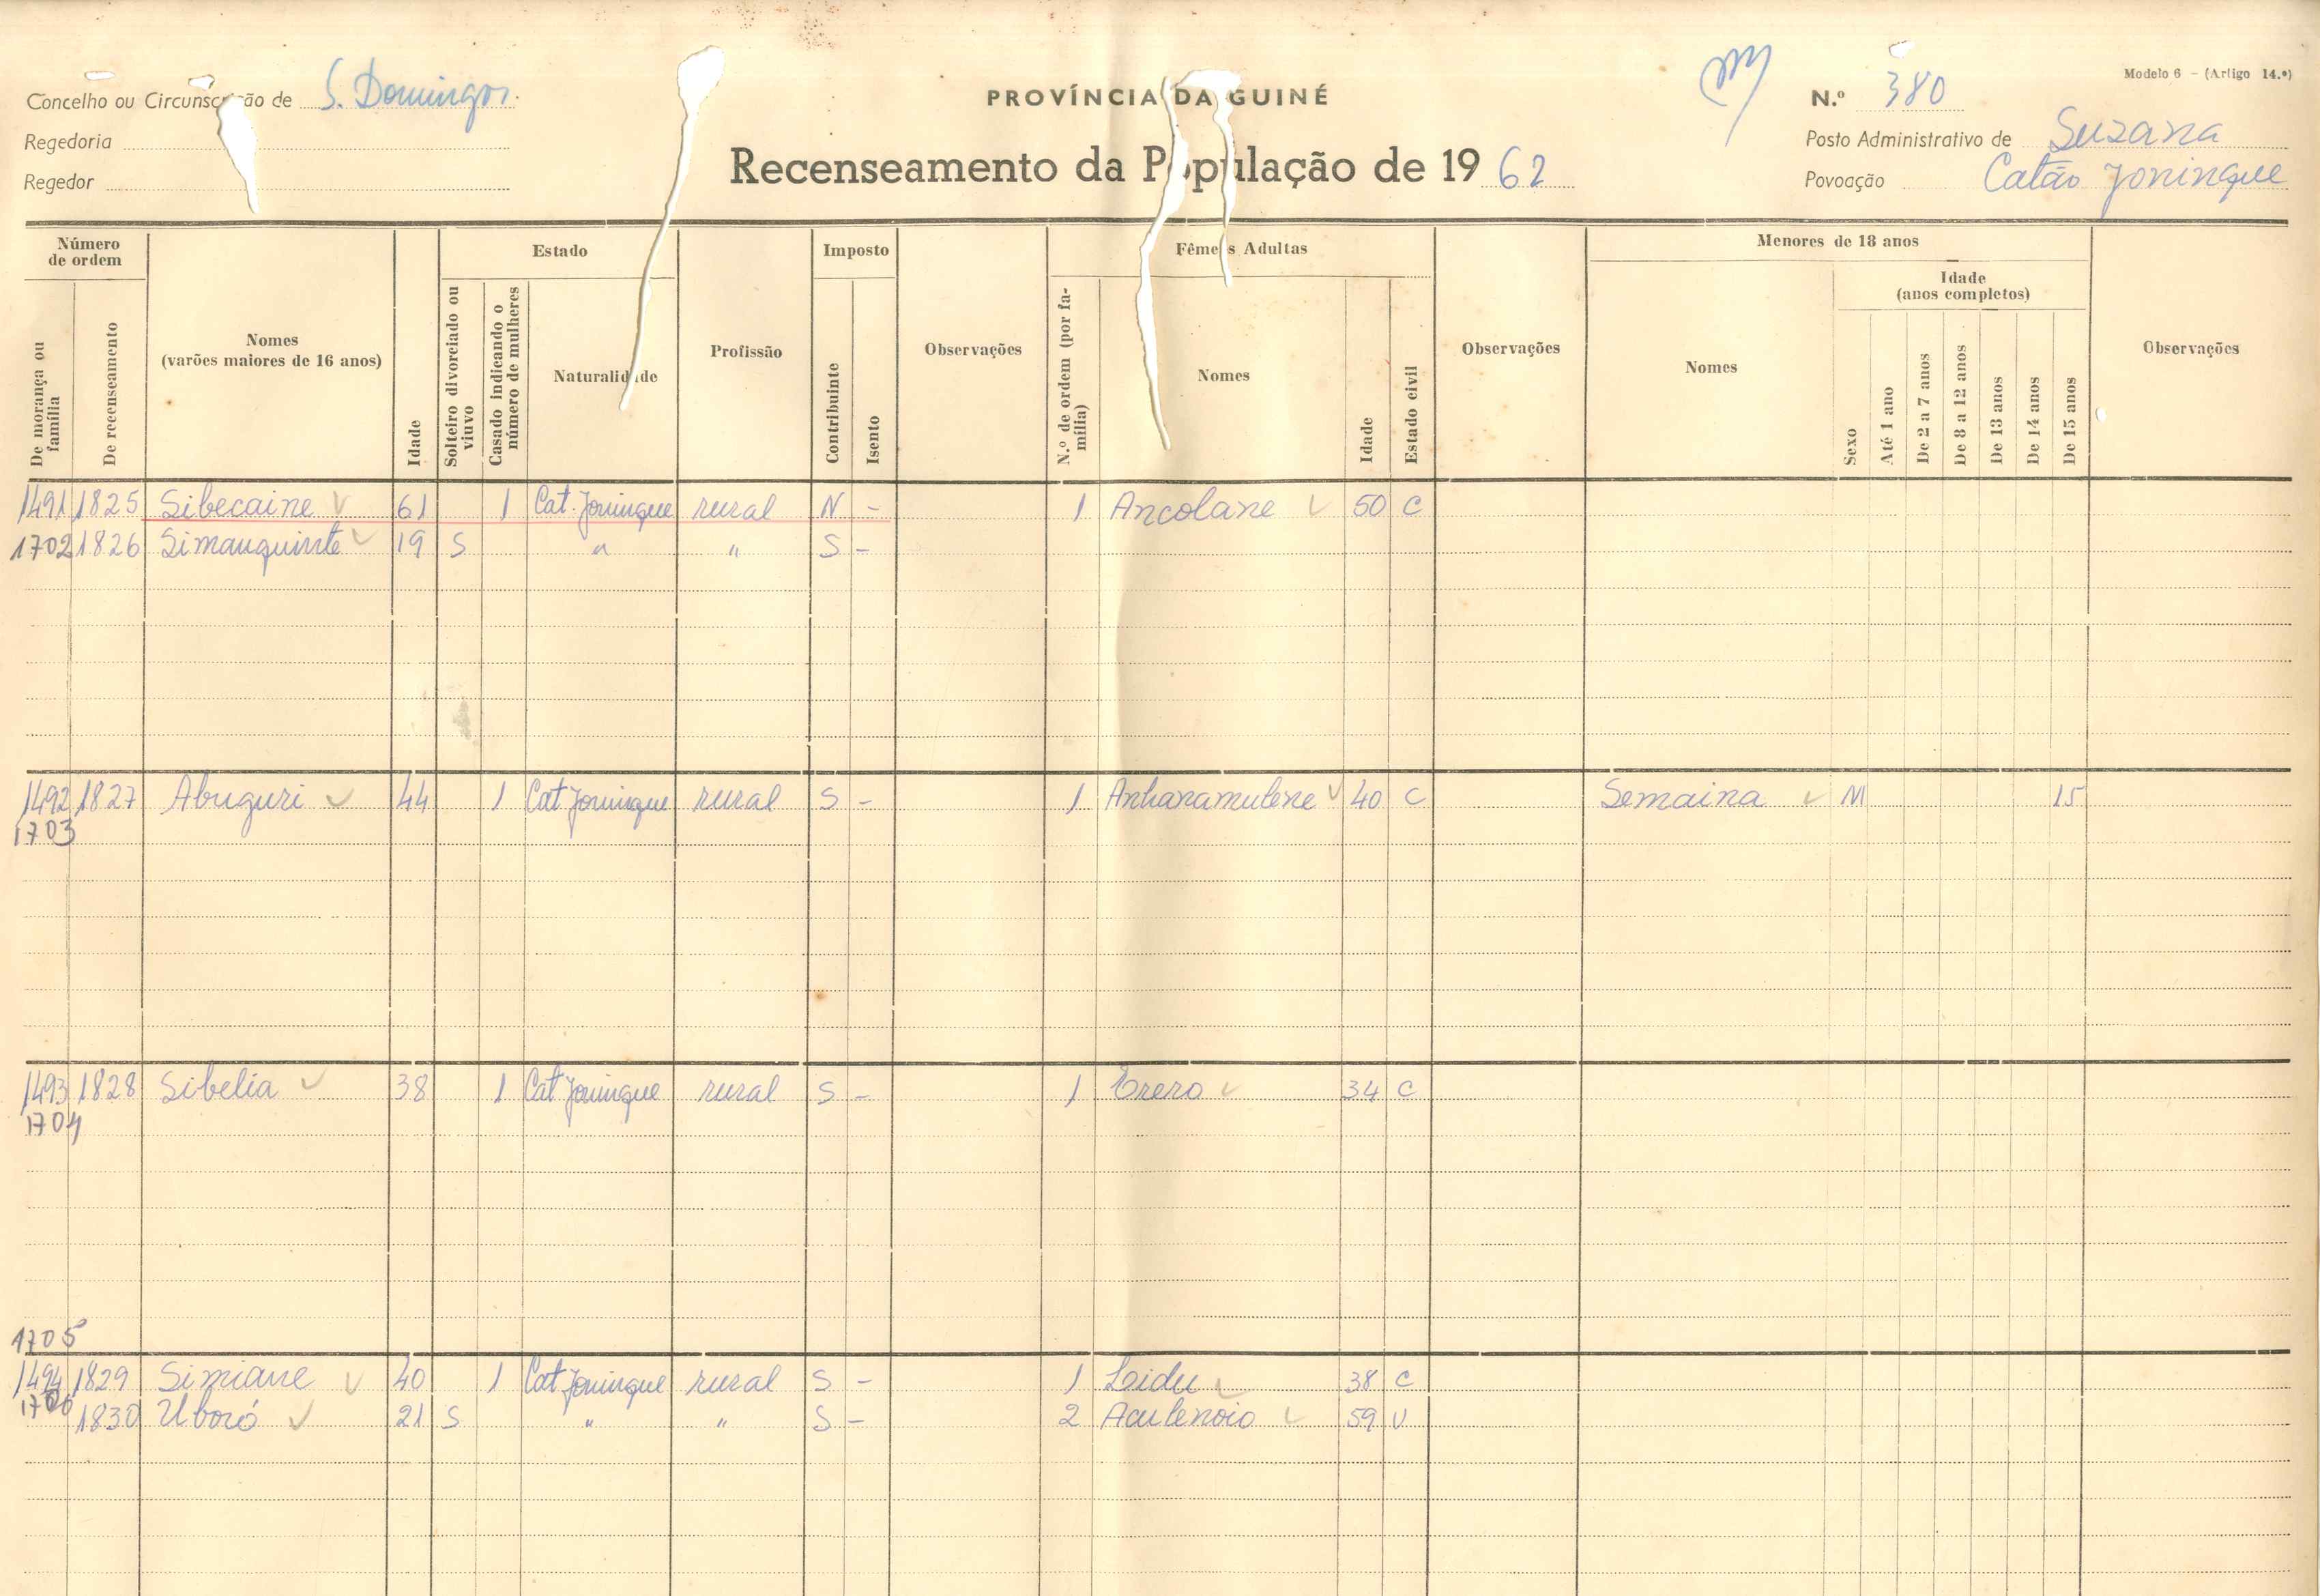 Modelo 6 - (Artigo 14.º)
Concelho ou Circunscrição de S. Domingos
PROVÍNCIA DA GUINÉ
N.º 380
Regedoria
Posto Administrativo de Suzana
Recenseamento da População de 1962
Regedor
Povoação Catão Joninque
Número de ordem
Estado
Imposto
Fêmeas Adultas
Menores de 18 anos
Idade (anos completos)
De morança ou família
De recenseamento
Nomes (varões maiores de 16 anos)
Idade
Solteiro divorciado ou viuvo
Casado indicando o número de mulheres
Naturalidade
Profissão
Contribuinte
Isento
Observações
N.º de ordem (por família)
Nomes
Idade
Estado civil
Observações
Nomes
Sexo
Até 1 ano
De 2 a 7 anos
De 8 a 12 anos
De 13 anos
De 14 anos
De 15 anos
Observações
1491 1825 Sibecaine 61 1 Cat. Joninque rural N - 1 Ancolane 50 C
1702 1826 Simauquinte 19 S " " S -
1492 1827 Abuguri 44 1 Cat Joninque rural S - 1 Anhanamulene 40 C Semaina M 15
1703
1493 1828 Sibelia 38 1 Cat Joninque rural S - 1 Erero 34 C
1704
1705
1494 1829 Simiane 40 1 Cat Joninque rural S - 1 Leidu 38 C
1706 1830 Uboró 21 S " " S - 2 Aculenoio 59 V